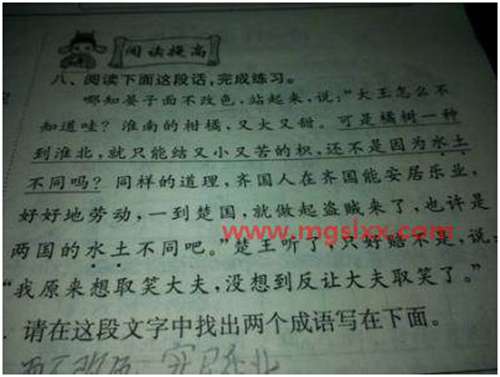 阅读提高
八、阅读下面这段话，完成练习。
哪知晏子面不改色，站起来，说：“大王怎么不
知道哇？淮南的柑橘，又大又甜。可是橘树一种
到淮北，就只能结又小又苦的枳，还不是因为水土
不同吗？同样的道理，齐国人在齐国能安居乐业，
好好地劳动，一到楚国，就做起盗贼来了，也许是
两国的水土不同吧。”楚王听了，只好赔不是，说：
www.mgslxx.com
“我原来想取笑大夫，没想到反让大夫取笑了。”
请在这段文字中找出两个成语写在下面。
面不改色 安居乐业